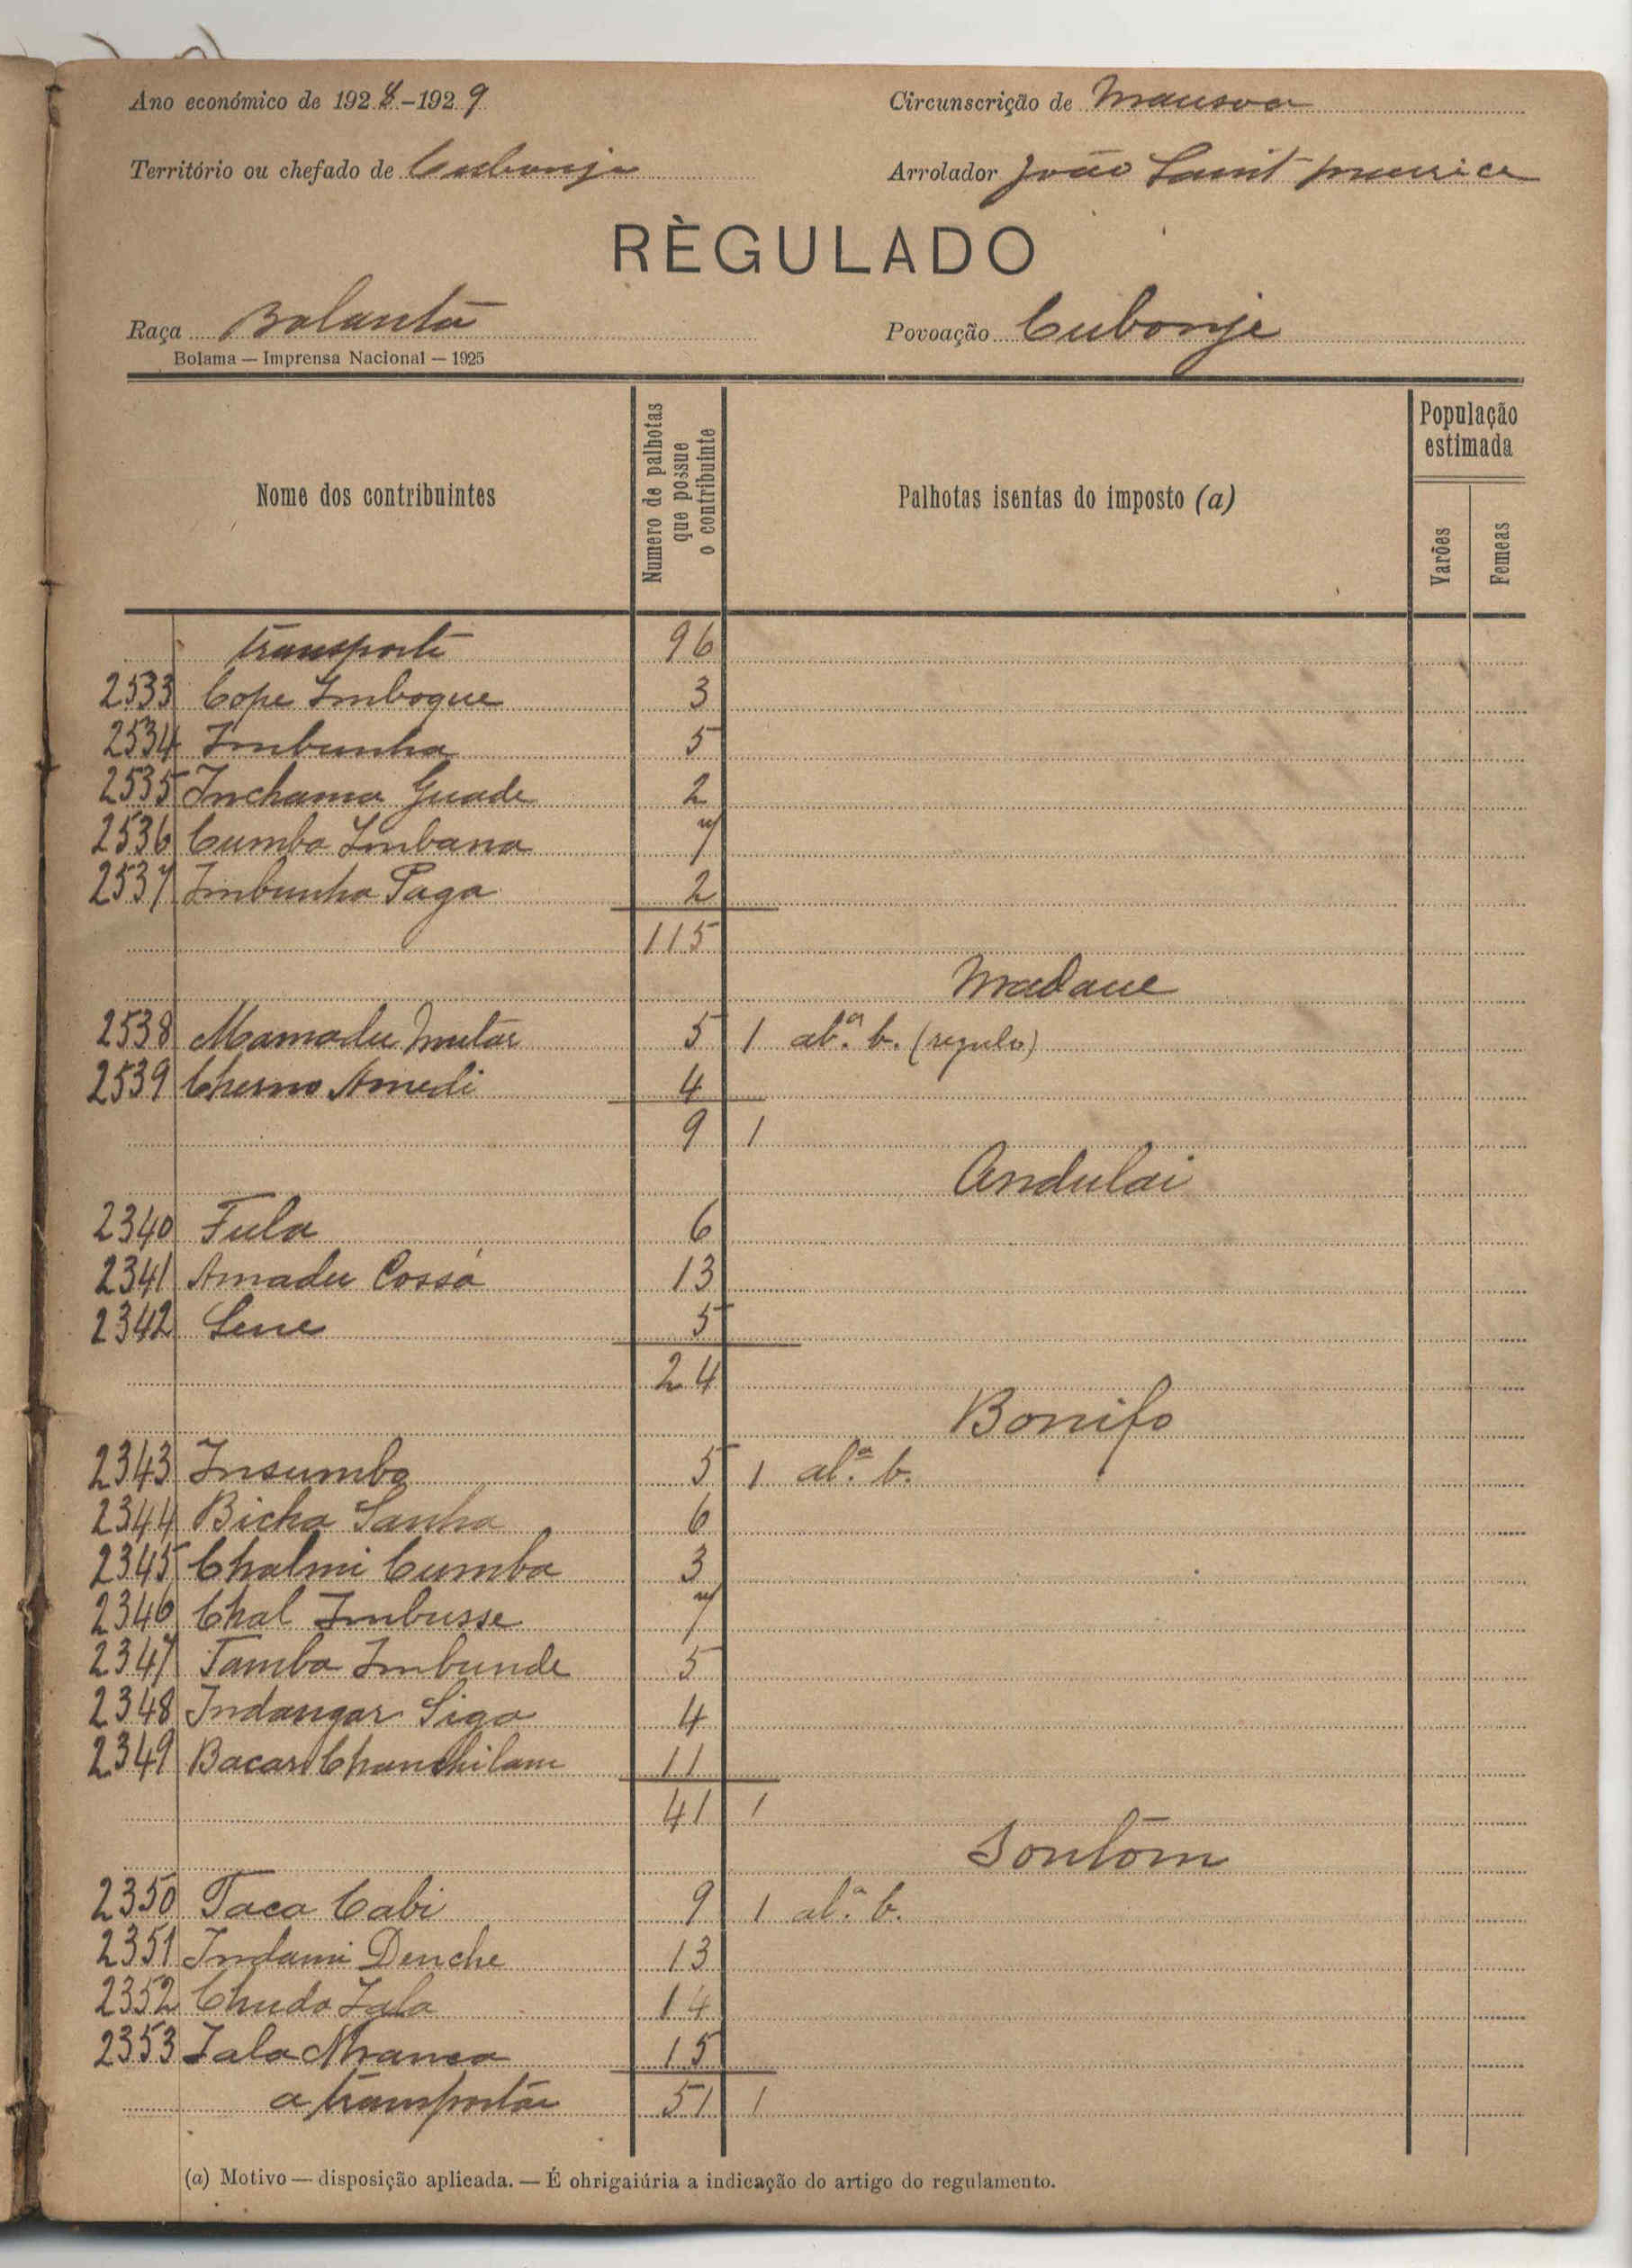 Ano económico de 1928-1929 Circunscrição de Mansoa
Território ou chefado de Cubonje Arrolador João Saint Maurice
RÈGULADO
Raça Balanta Povoação Cubonje
Bolama — Imprensa Nacional — 1925
Nome dos contribuintes
Numero de palhotas que possue o contribuinte
Palhotas isentas do imposto (a)
População estimada
Varões
Femeas
Transporte 96
2533 Cope Imboque 3
2534 Imbunha 5
2535 Inchama Guade 2
2536 Cumba Imbana 7
2537 Imbunha Paga 2
115
Madane
2538 Mamadu Mutar 5 1 al.ª b. (regulo)
2539 Cherno Amedi 4
9 1
Andulai
2340 Fula 6
2341 Amadu Cossá 13
2342 Sene 5
24
Bonifo
2343 Insumba 5 1 al.ª b.
2344 Bicha Sanha 6
2345 Chalmi Cumba 3
2346 Chal Imbusse 7
2347 Tamba Imbunde 5
2348 Indangar Siga 4
2349 Bacar 11
41 1
2350 Taca Cabi 9 1 al.ª b.
2351 Indami Denche 13
2352 Chuda Iala 14
2353 Iala 15
a transportar 51 1
(a) Motivo — disposição aplicada. — É ohrigaiúria a indicação do artigo do regulamento.